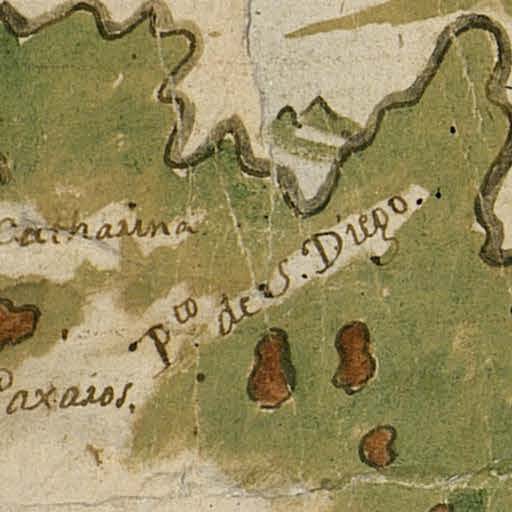 Catharina
Pto de S. Diego.
Paxaros.